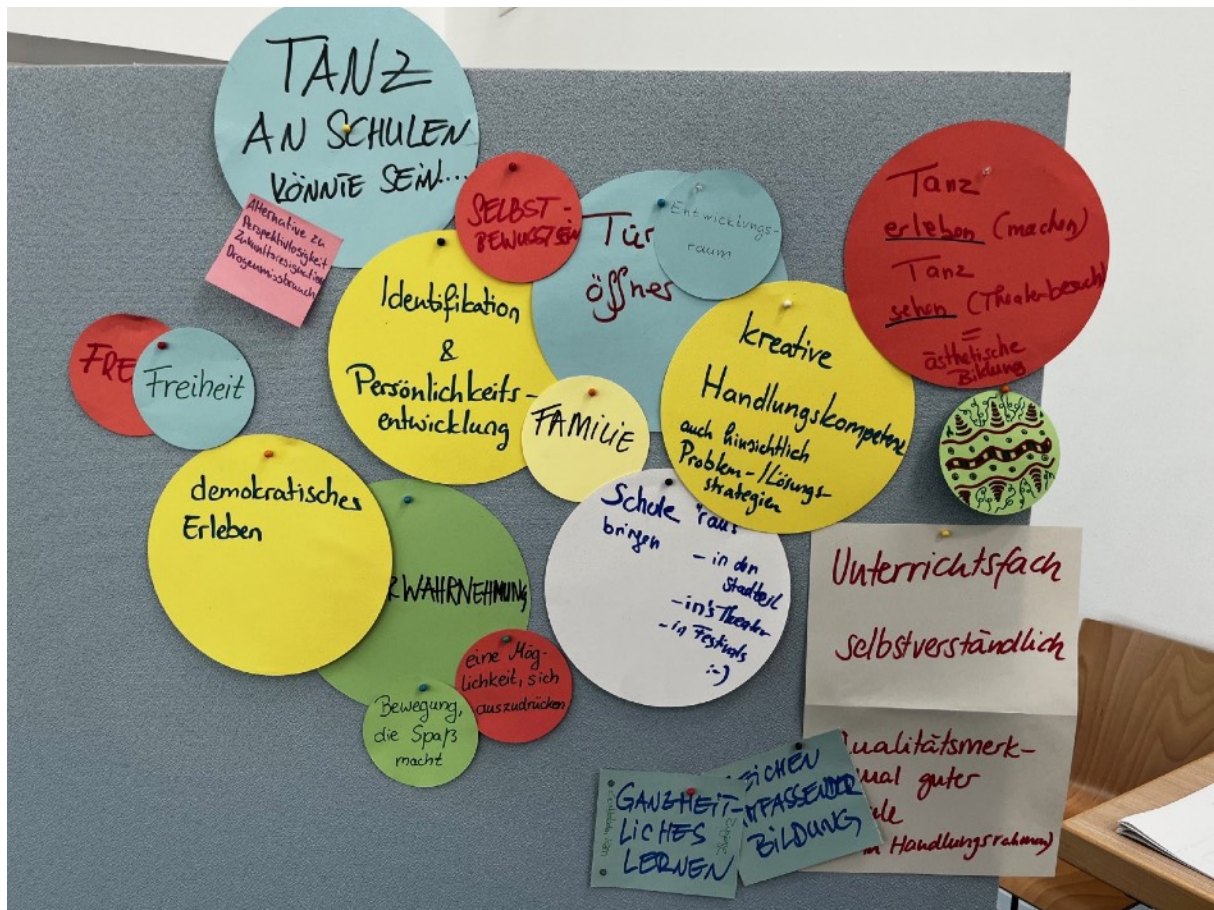 TANZ
AN SCHULEN
KÖNNTE SEIN...
Alternative zu
Perspektivlosigkeit
Zukunftsresignation
Drogenmissbrauch
SELBST-
BEWUSSTSEIN
Tür
öffner
Entwicklungs-
raum
Tanz
erleben (machen)
Tanz
sehen (Theaterbesuch)
=
ästhetische
Bildung
Identifikation
&
Persönlichkeits-
entwicklung
FRE
Freiheit
FAMILIE
kreative
Handlungskompetenz
auch hinsichtlich
Problem-/Lösungs-
strategien
demokratisches
Erleben
RWAHRNEHMUNG
Schule 'raus
bringen
- in den
Stadtteil
- in's Theater
- in Festivals
:-)
eine Mög-
lichkeit, sich
auszudrücken
Bewegung,
die Spaß
macht
Unterrichtsfach
selbstverständlich
ualitätsmerk-
mal guter
ule
Handlungsrahmen)
GANZHEIT-
LICHES
LERNEN
EICHEN
MPASSENDER
BILDUNG